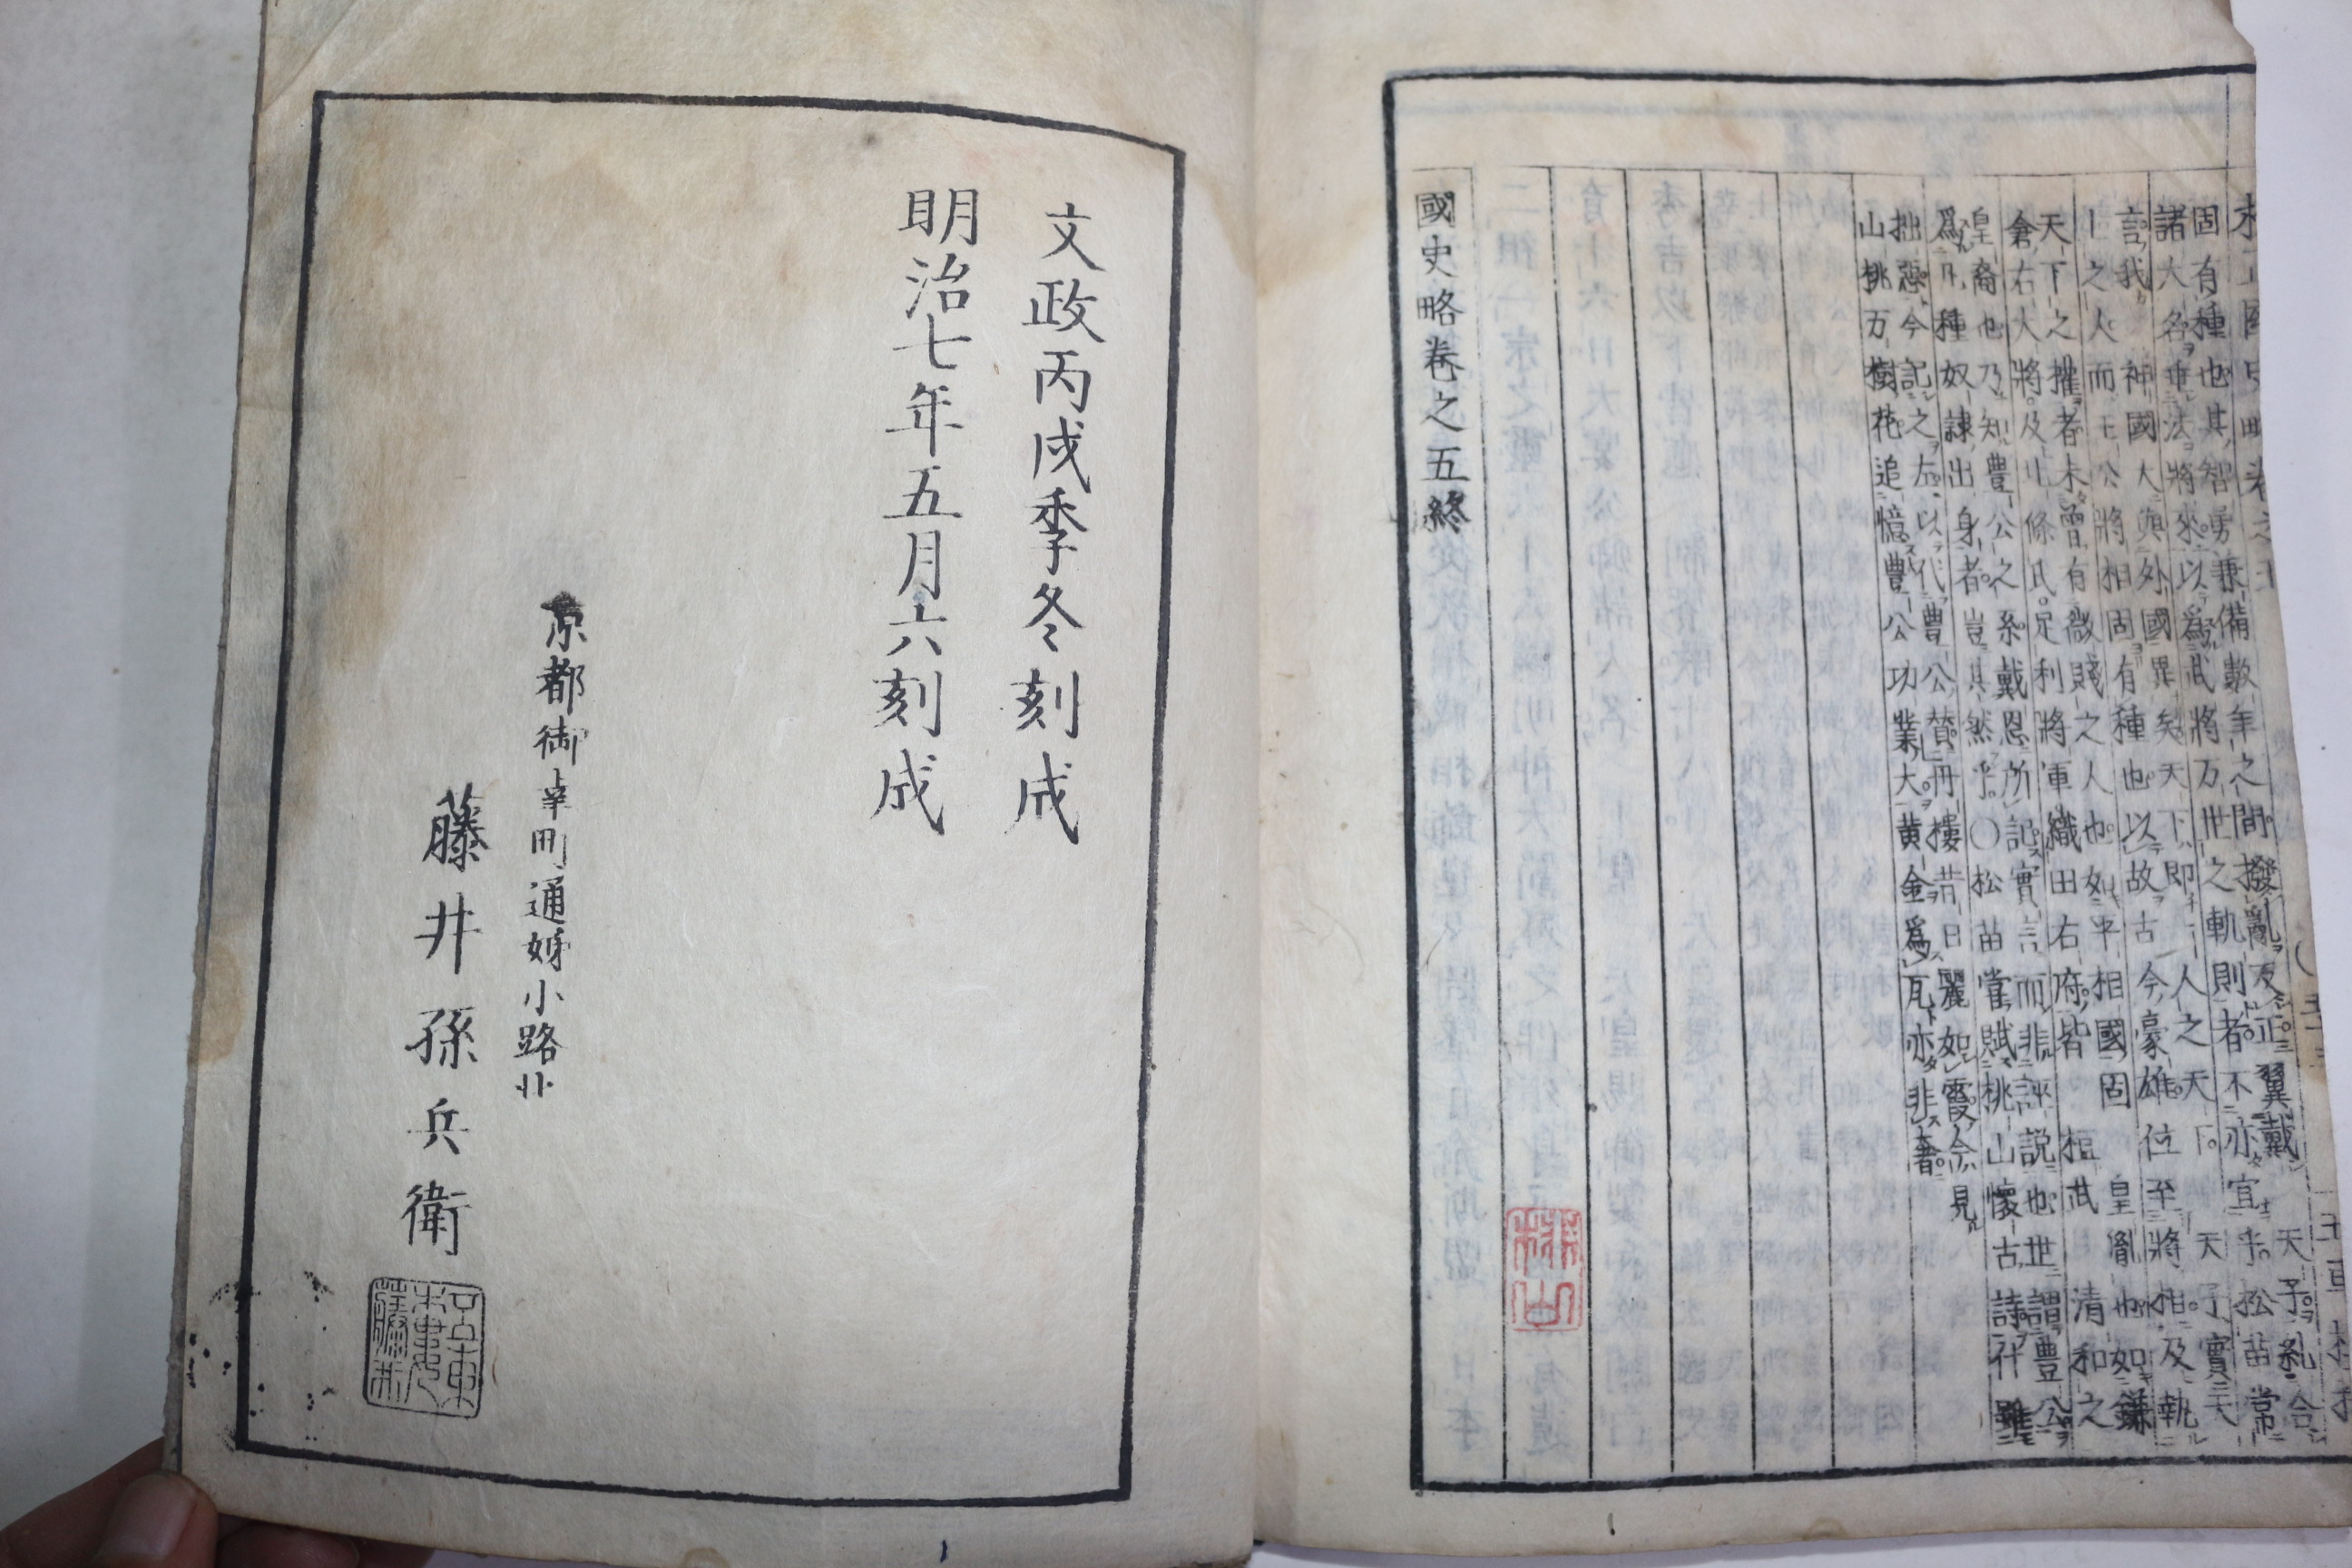 固有種也其智勇兼備數年之間撥亂反正翼戴　天子糺合
諸大名垂法將來以爲武將万世之軌則者不亦宜乎松苗常
言我　神國大與外國異矣天下即一人之天下　天子實天
上之人而王公將相固有種也以故古今豪雄位至將相及執
天下之權者未曾有微賤之人也如平相國固　皇胤也如鎌
倉右大將及北條氏足利將軍織田右府皆　桓武　清和之
皇裔也乃知豊公之系戴恩所記實言而非誣説也世謂豊公
爲凡種奴隷出身者豈其然乎〇松苗嘗賦桃山懷古詩什雖
拙惡今記之左以代豊公賛丹樓昔日麗如霞今見
山桃万樹花追憶豊公功業大黄金爲瓦亦非奢
國史略卷之五終
文政丙戌季冬刻成
明治七年五月六刻成
京都御幸町通姉小路北
藤井孫兵衛